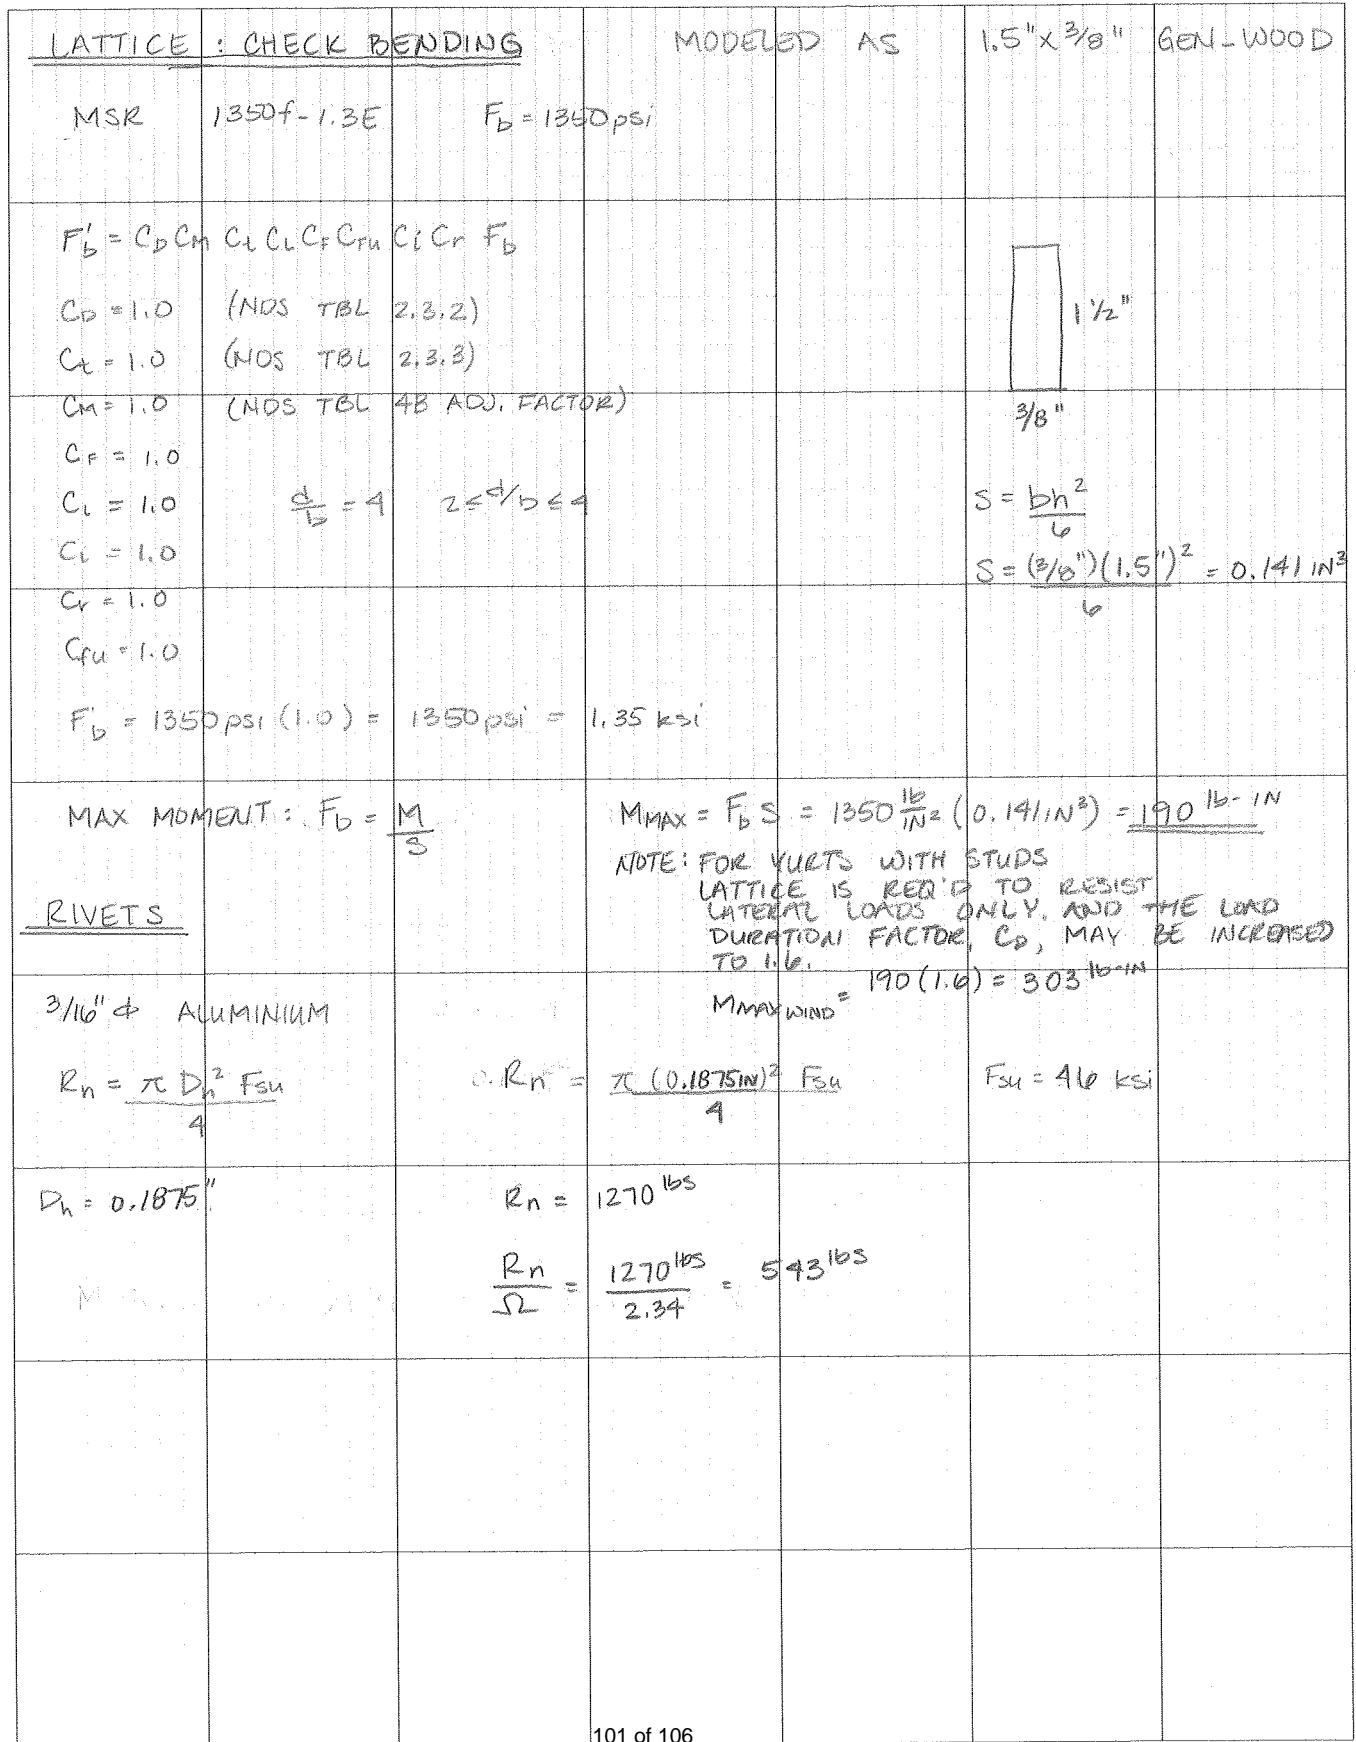 LATTICE : CHECK BENDING MODELED AS 1.5" x 3/8" GEN-WOOD
MSR 1350f-1.3E F_b = 1350 psi
F'_b = C_D C_M C_t C_L C_F C_fu C_i C_r F_b
C_D = 1.0 (NDS TBL 2.3.2)
1 1/2"
C_t = 1.0 (NDS TBL 2.3.3)
C_M = 1.0 (NDS TBL 4B ADJ. FACTOR)
3/8"
C_F = 1.0
C_L = 1.0 d/b = 4 2 ≤ d/b ≤ 4
S = bh²/6
C_i = 1.0
S = (3/8")(1.5")²/6 = 0.141 IN³
C_r = 1.0
C_fu = 1.0
F'_b = 1350 psi (1.0) = 1350 psi = 1.35 ksi
MAX MOMENT: F_b = M/S M_MAX = F_b S = 1350 lb/IN² (0.141 IN³) = 190 lb-IN
NOTE: FOR YURTS WITH STUDS
LATTICE IS REQ'D TO RESIST
LATERAL LOADS ONLY, AND THE LOAD
DURATION FACTOR, C_D, MAY BE INCREASED
TO 1.6.
M_MAX WIND = 190 (1.6) = 303 lb-IN
RIVETS
3/16" ϕ ALUMINIUM
R_n = π D_h² F_su/4 R_n = π (0.1875 IN)² F_su/4 F_su = 46 ksi
D_h = 0.1875" R_n = 1270 lbs
R_n/Ω = 1270 lbs/2.34 = 543 lbs
101 of 106